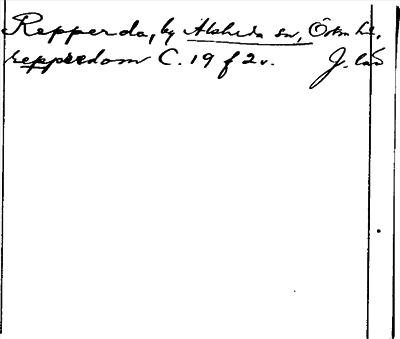 Repperda, by Alsheda sn, Ö. hd.
repperdom C. 19 f 2v. J. län